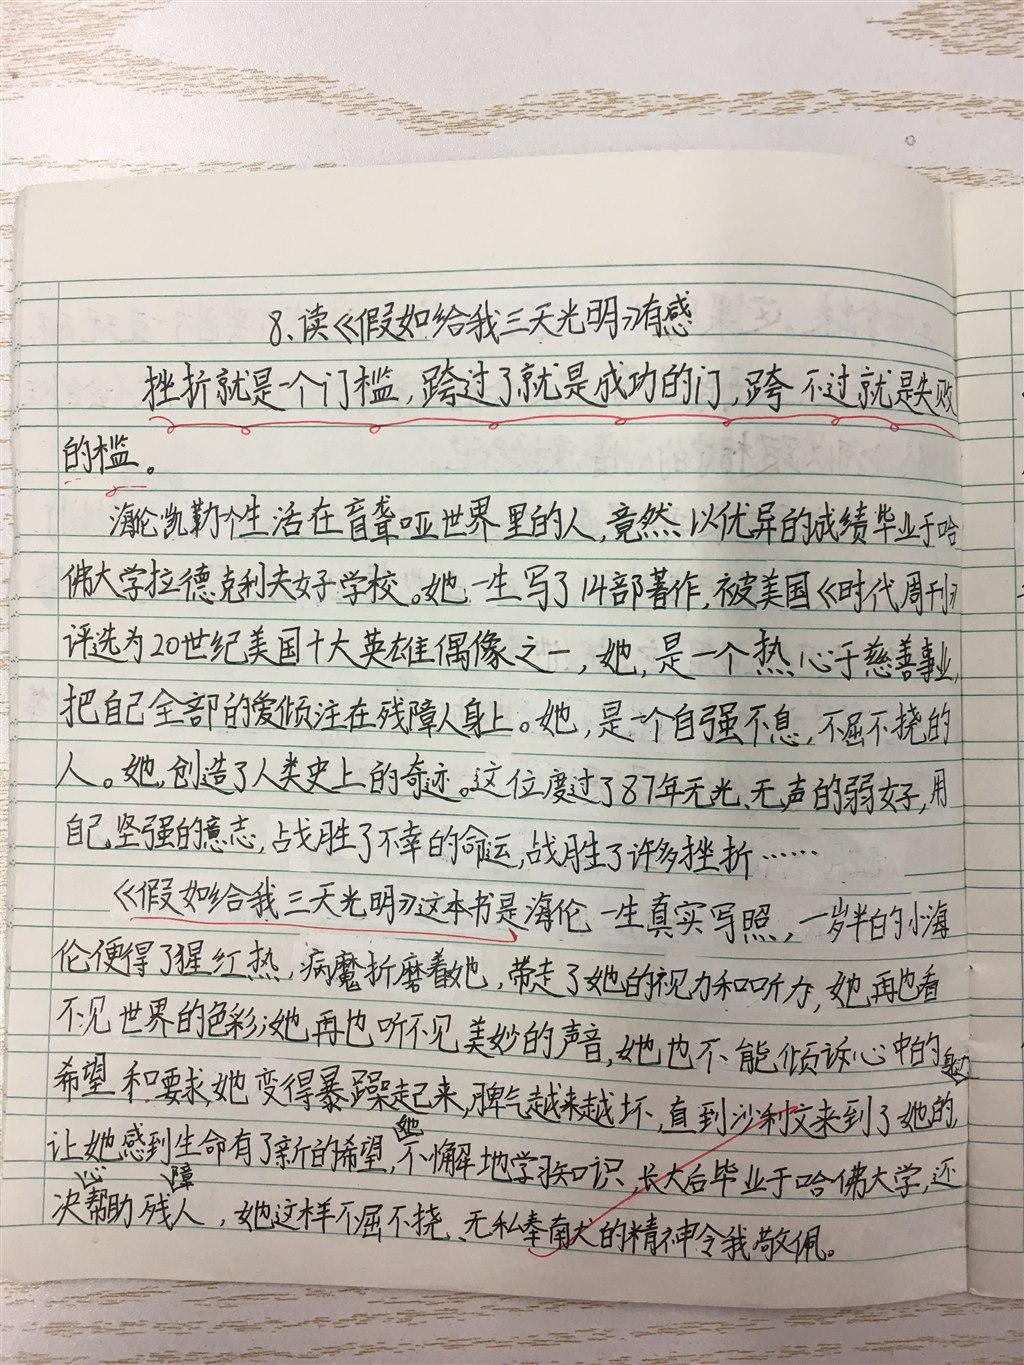 8、读《假如给我三天光明》有感
挫折就是一个门槛，跨过了就是成功的门，跨不过就是失败
的槛。
海伦凯勒个生活在盲聋哑世界里的人，竟然以优异的成绩毕业于哈
佛大学拉德克利夫女子学校。她一生写了14部著作，被美国《时代周刊》
评选为20世纪美国十大英雄偶像之一，她，是一个热心于慈善事业，
把自己全部的爱倾注在残障人身上。她，是一个自强不息，不屈不挠的
人。她，创造了人类史上的奇迹。这位度过了87年无光、无声的弱女子，用
自己坚强的意志，占戈胜了不幸的命运，战胜了许多挫折……
《假如给我三天光明》这本书是海伦一生真实写照，一岁半的小海
伦便得了猩红热，病魔折磨着她，带走了她的视力和听力，她再也看
不见世界的色彩；她再也听不见美妙的声音，她也不能倾诉心中的
希望和要求，她变得暴躁起来，脾气越来越坏，直到沙利文来到了她的身边，
让她感到生命有了新的希望，她不懈地学习知识，长大后毕业于哈佛大学，还
决心帮助残障人，她这样不屈不挠、无私奉献的精神令我敬佩。